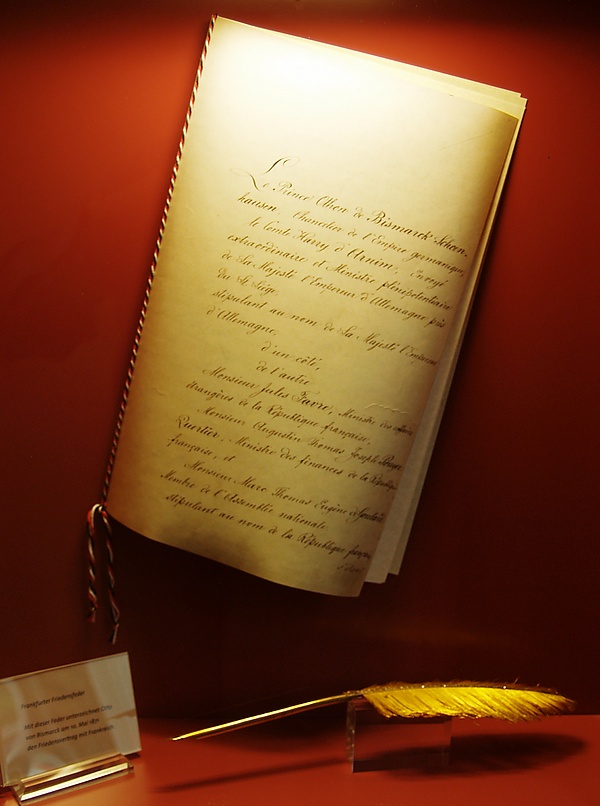 Le Prince Othon de Bismarck-Schoen-
hausen, Chancelier de l'Empire germanique,
le Comte Harry d'Arnim, Envoyé
extraordinaire et Ministre plénipotentiaire
de Sa Majesté l'Empereur d'Allemagne près
du St Siège
stipulant au nom de Sa Majesté l'Empereur
d'Allemagne,
d'un côté,
de l'autre
Monsieur Jules Favre, Ministre des affaires
étrangères de la République française,
Monsieur Augustin Thomas Joseph Pouyer-
Quertier, Ministre des finances de la République
française, et
Monsieur Marc Thomas Eugène de Goulard
Membre de l'Assemblée nationale
stipulant au nom de la République française
Frankfurter Friedensfeder
Mit dieser Feder unterzeichnet Otto
von Bismarck am 10. Mai 1871
den Friedensvertrag mit Frankreich.